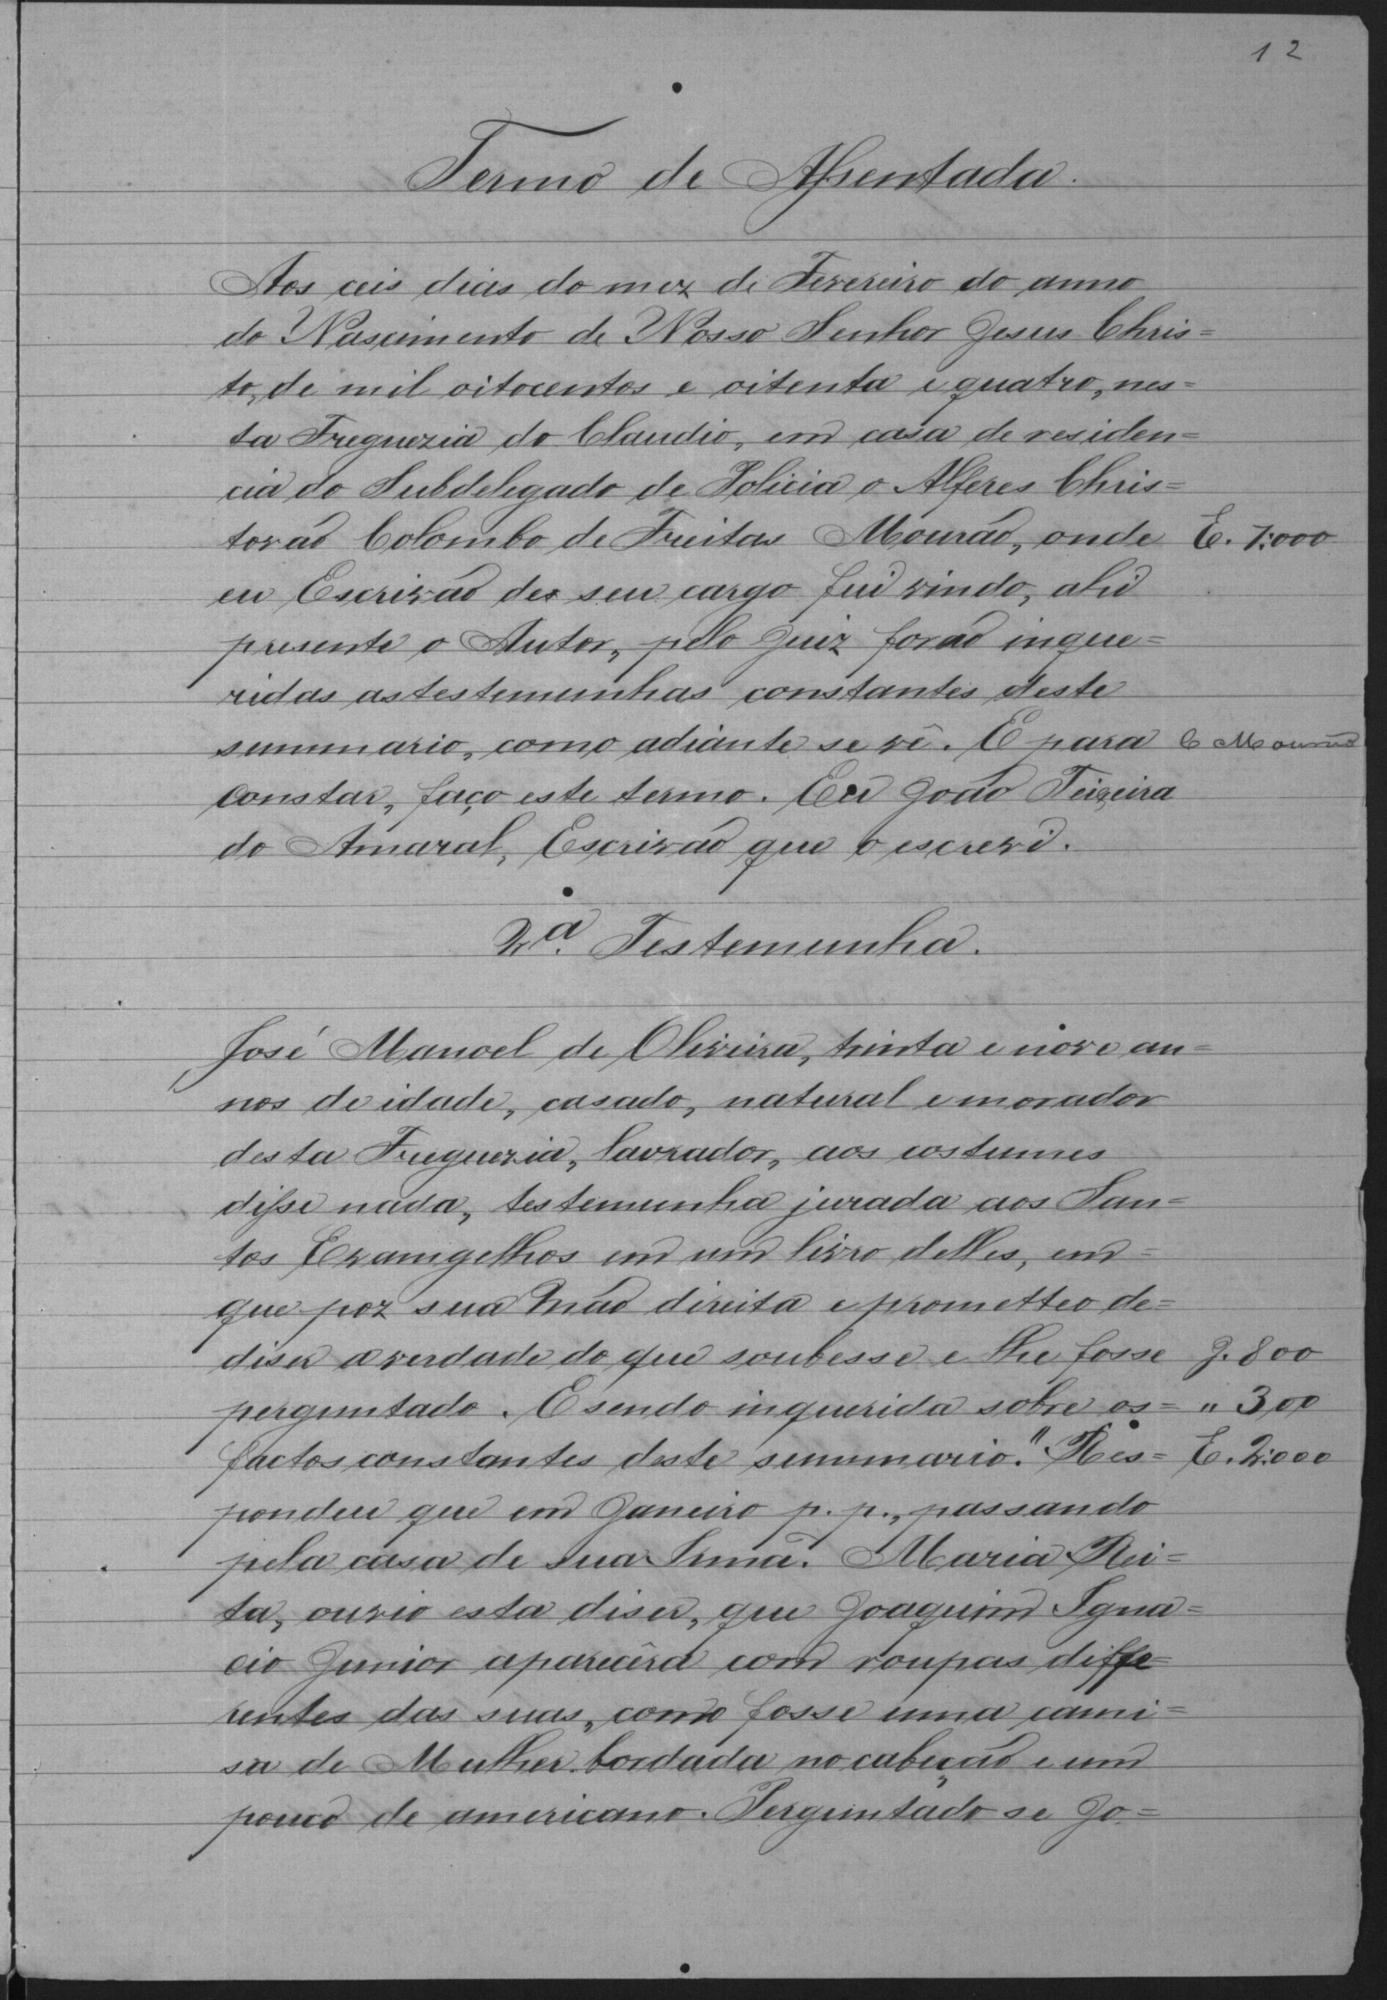 12
Termo de Assentada.
Aos ceis dias do mez de Fevereiro do anno
do Nascimento de Nosso Senhor Jesus Chris=
to, de mil oitocentos e oitenta e quatro, nes=
ta Freguezia do Claudio, em casa de residen=
cia do Subdelegado de Policia o Alferes Chris=
tovaõ Colombo de Freitas Mouraõ, onde E. 1:000
eu Escrivaõ de seu cargo fui vindo, ahi
presente o Autor, pelo Juiz foraõ inque=
ridas as testemunhas constantes deste
summario, como adiante se vê. E para C Mouraõ
constar, faço este termo. Eu Joaõ Teixeira
do Amaral, Escrivaõ que o escrevi.
2ª. Testemunha.
José Manoel de Oliveira, trinta e nove an=
nos de idade, casado, natural e morador
desta Freguezia, lavrador, aos costumes
disse nada, testemunha jurada aos San=
tos Evangelhos em um livro delles, em=
que poz sua maõ direita e prometteo de=
diser a verdade do que soubesse e lhe fosse J. 800
perguntado. E sendo inquerida sobre os= " 300
factos constantes deste summario." Res= E. 2:000
pondeu que em Janeiro p. p., passando
pela casa de sua Irmã. Maria Ri=
ta, ouvio esta diser, que Joaquim Igna=
cio Junior aparecêra com roupas diffe=
rentes das suas, como fosse uma cami=
sa de Mulher bordada no cabeçaõ e um
pouco de americano. Perguntado se Jo=